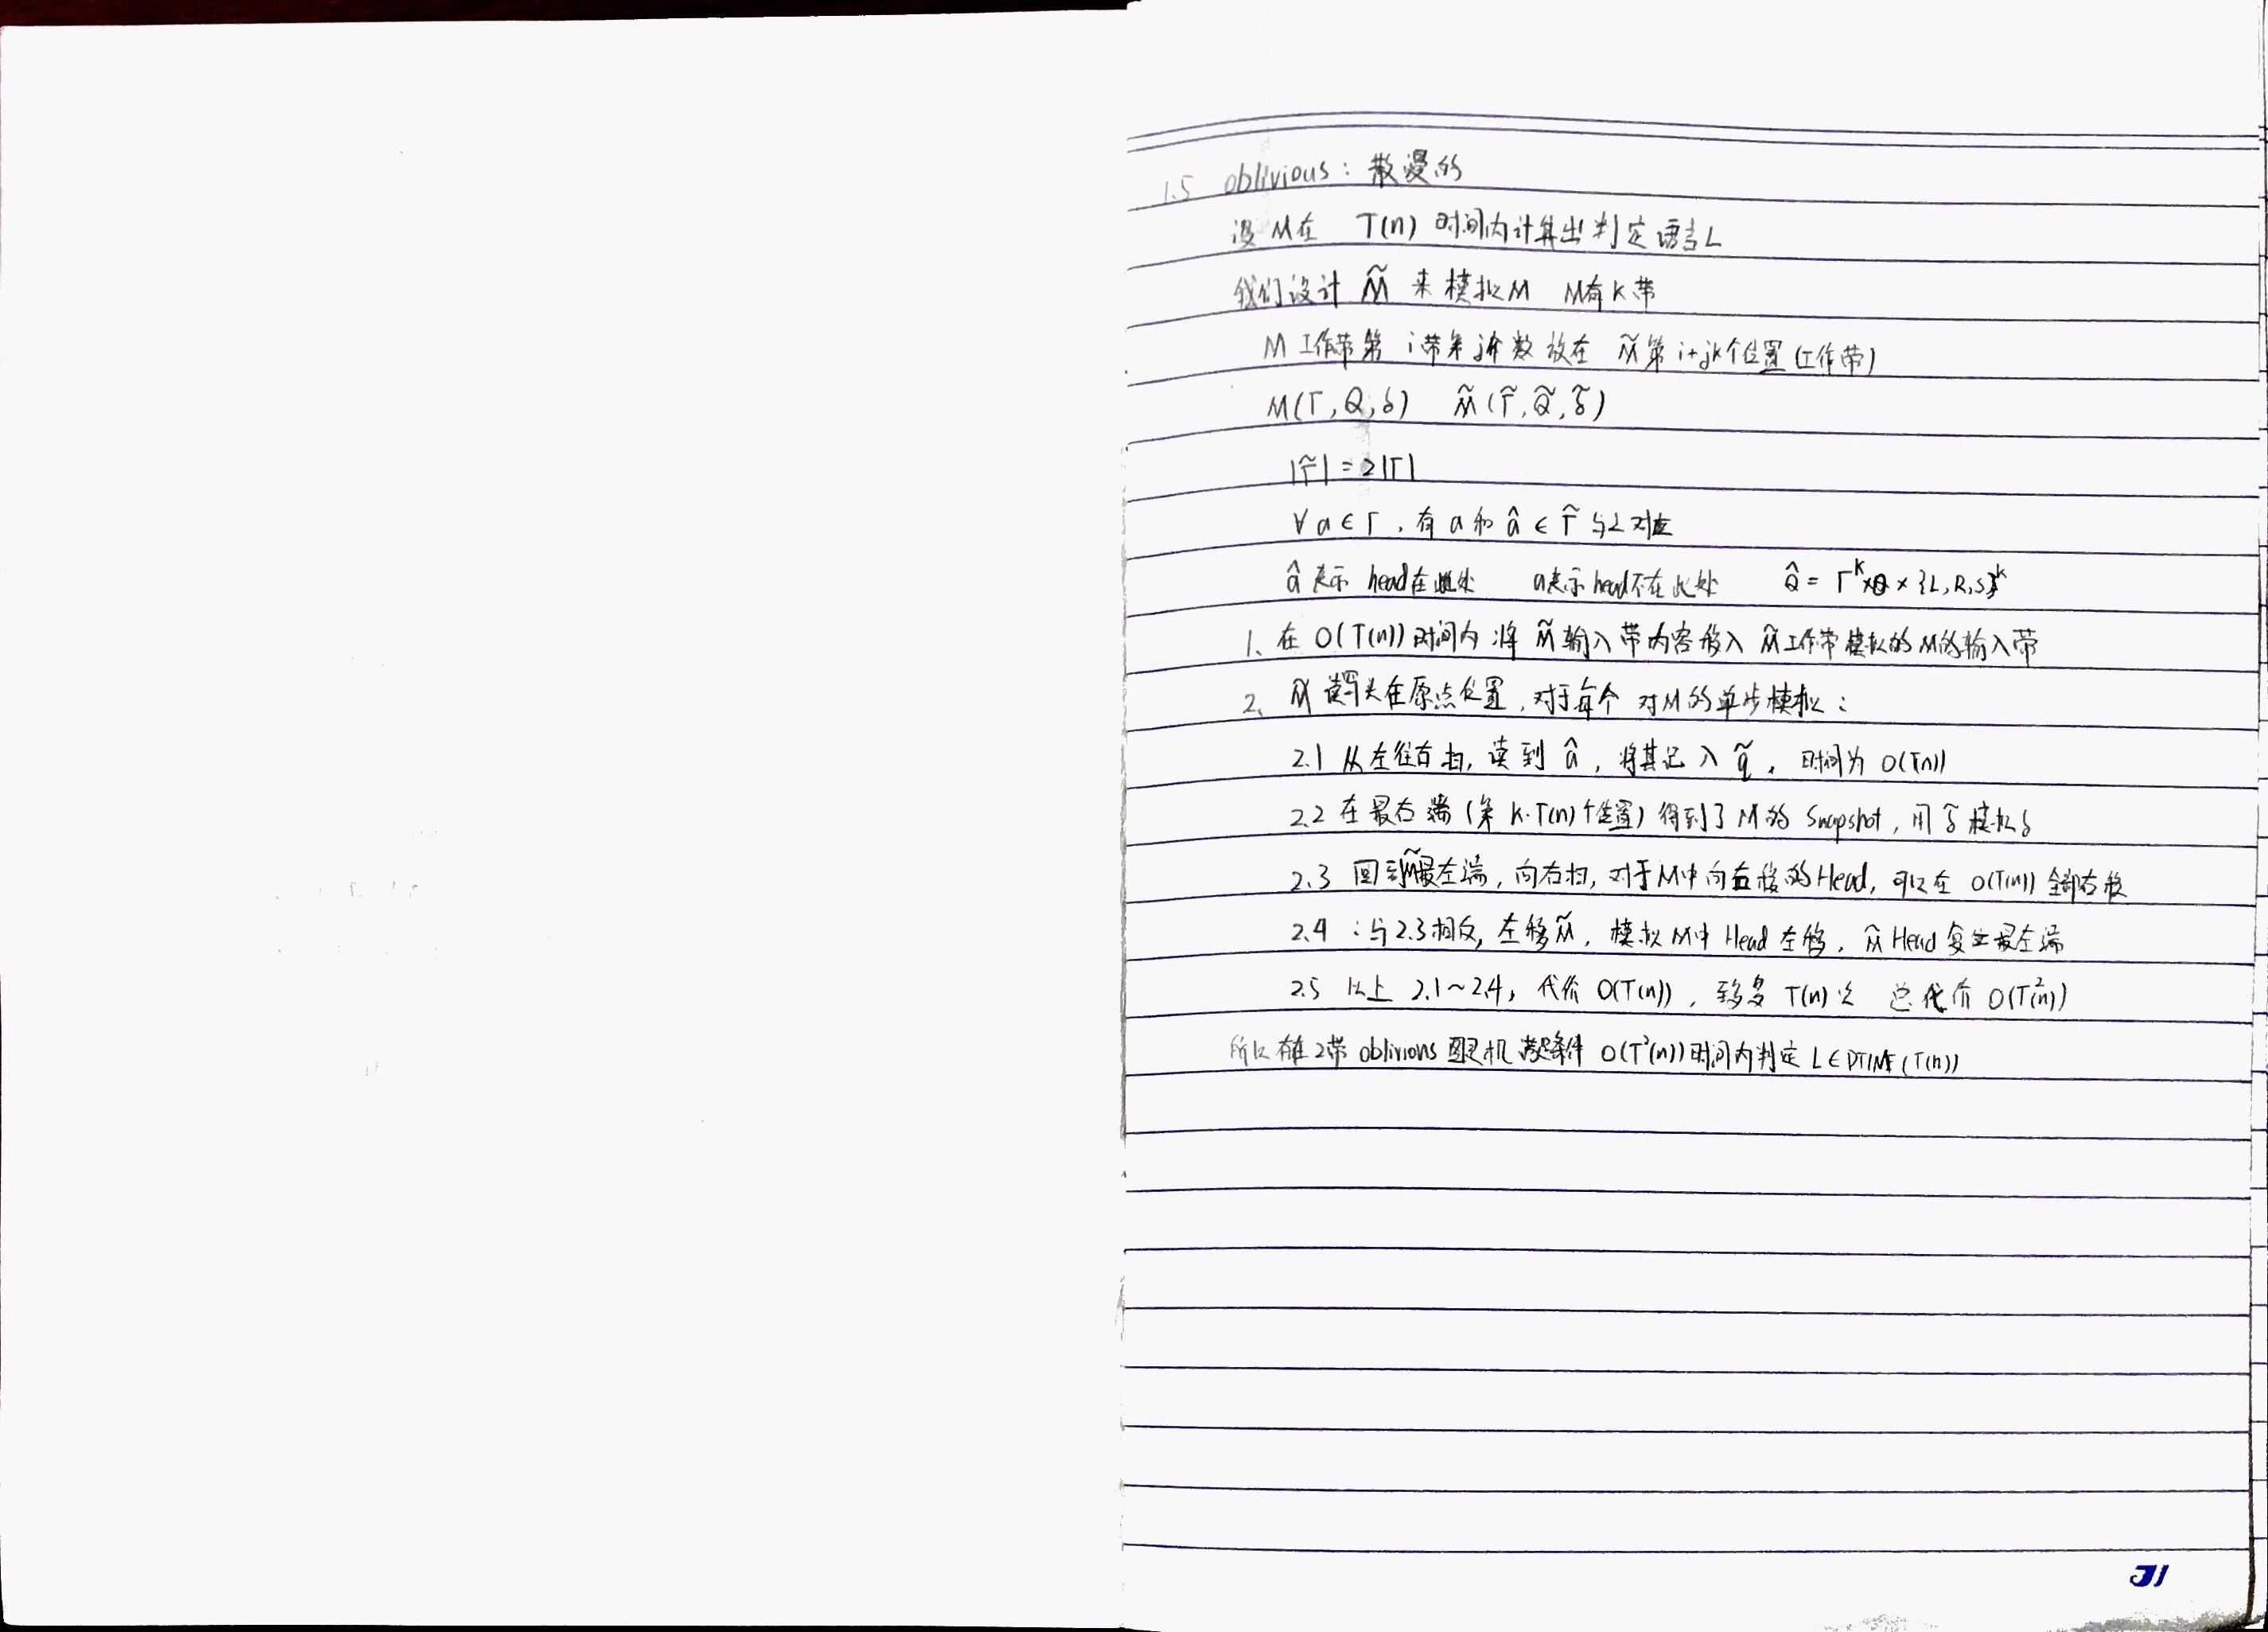 1.5 oblivious: 散漫的
设 M在 T(n) 时间内计算出判定语言L
我们设计 M̃ 来模拟M M有k带
M工作带第 i带第j个数放在 M̃第i+jk个位置(工作带)
M(Γ,Q,δ) M̃(Γ̃,Q̃,δ̃)
|Γ̃|=2|Γ|
∀a∈Γ,有a和â∈Γ̃与之对应
â表示 head在此处 a表示head不在此处 Q̂=Γ^k×Q×{L,R,S}^k
1、在 O(T(n))时间内将 M̃输入带内容移入 M̃工作带模拟的M的输入带
2、M̃读写头在原点位置,对于每个对M的单步模拟:
2.1 从左往右扫,读到 â,将其记入 q̃,时间为 O(T(n))
2.2 在最右端(第 k·T(n)个位置)得到了M的 Snapshot,用δ̃模拟δ
2.3 回到M̃最左端,向右扫,对于M中向右移的Head,可以在 O(T(n)) 全部右移
2.4 :与2.3相反,左移M̃,模拟M中 Head 左移,M̃ Head 复位最左端
2.5 以上 2.1~2.4,代价 O(T(n)),至多 T(n)次 总代价 O(T²(n))
所以 2带 oblivious 图灵机 O(T²(n))时间内判定 L∈DTIME(T(n))
JI